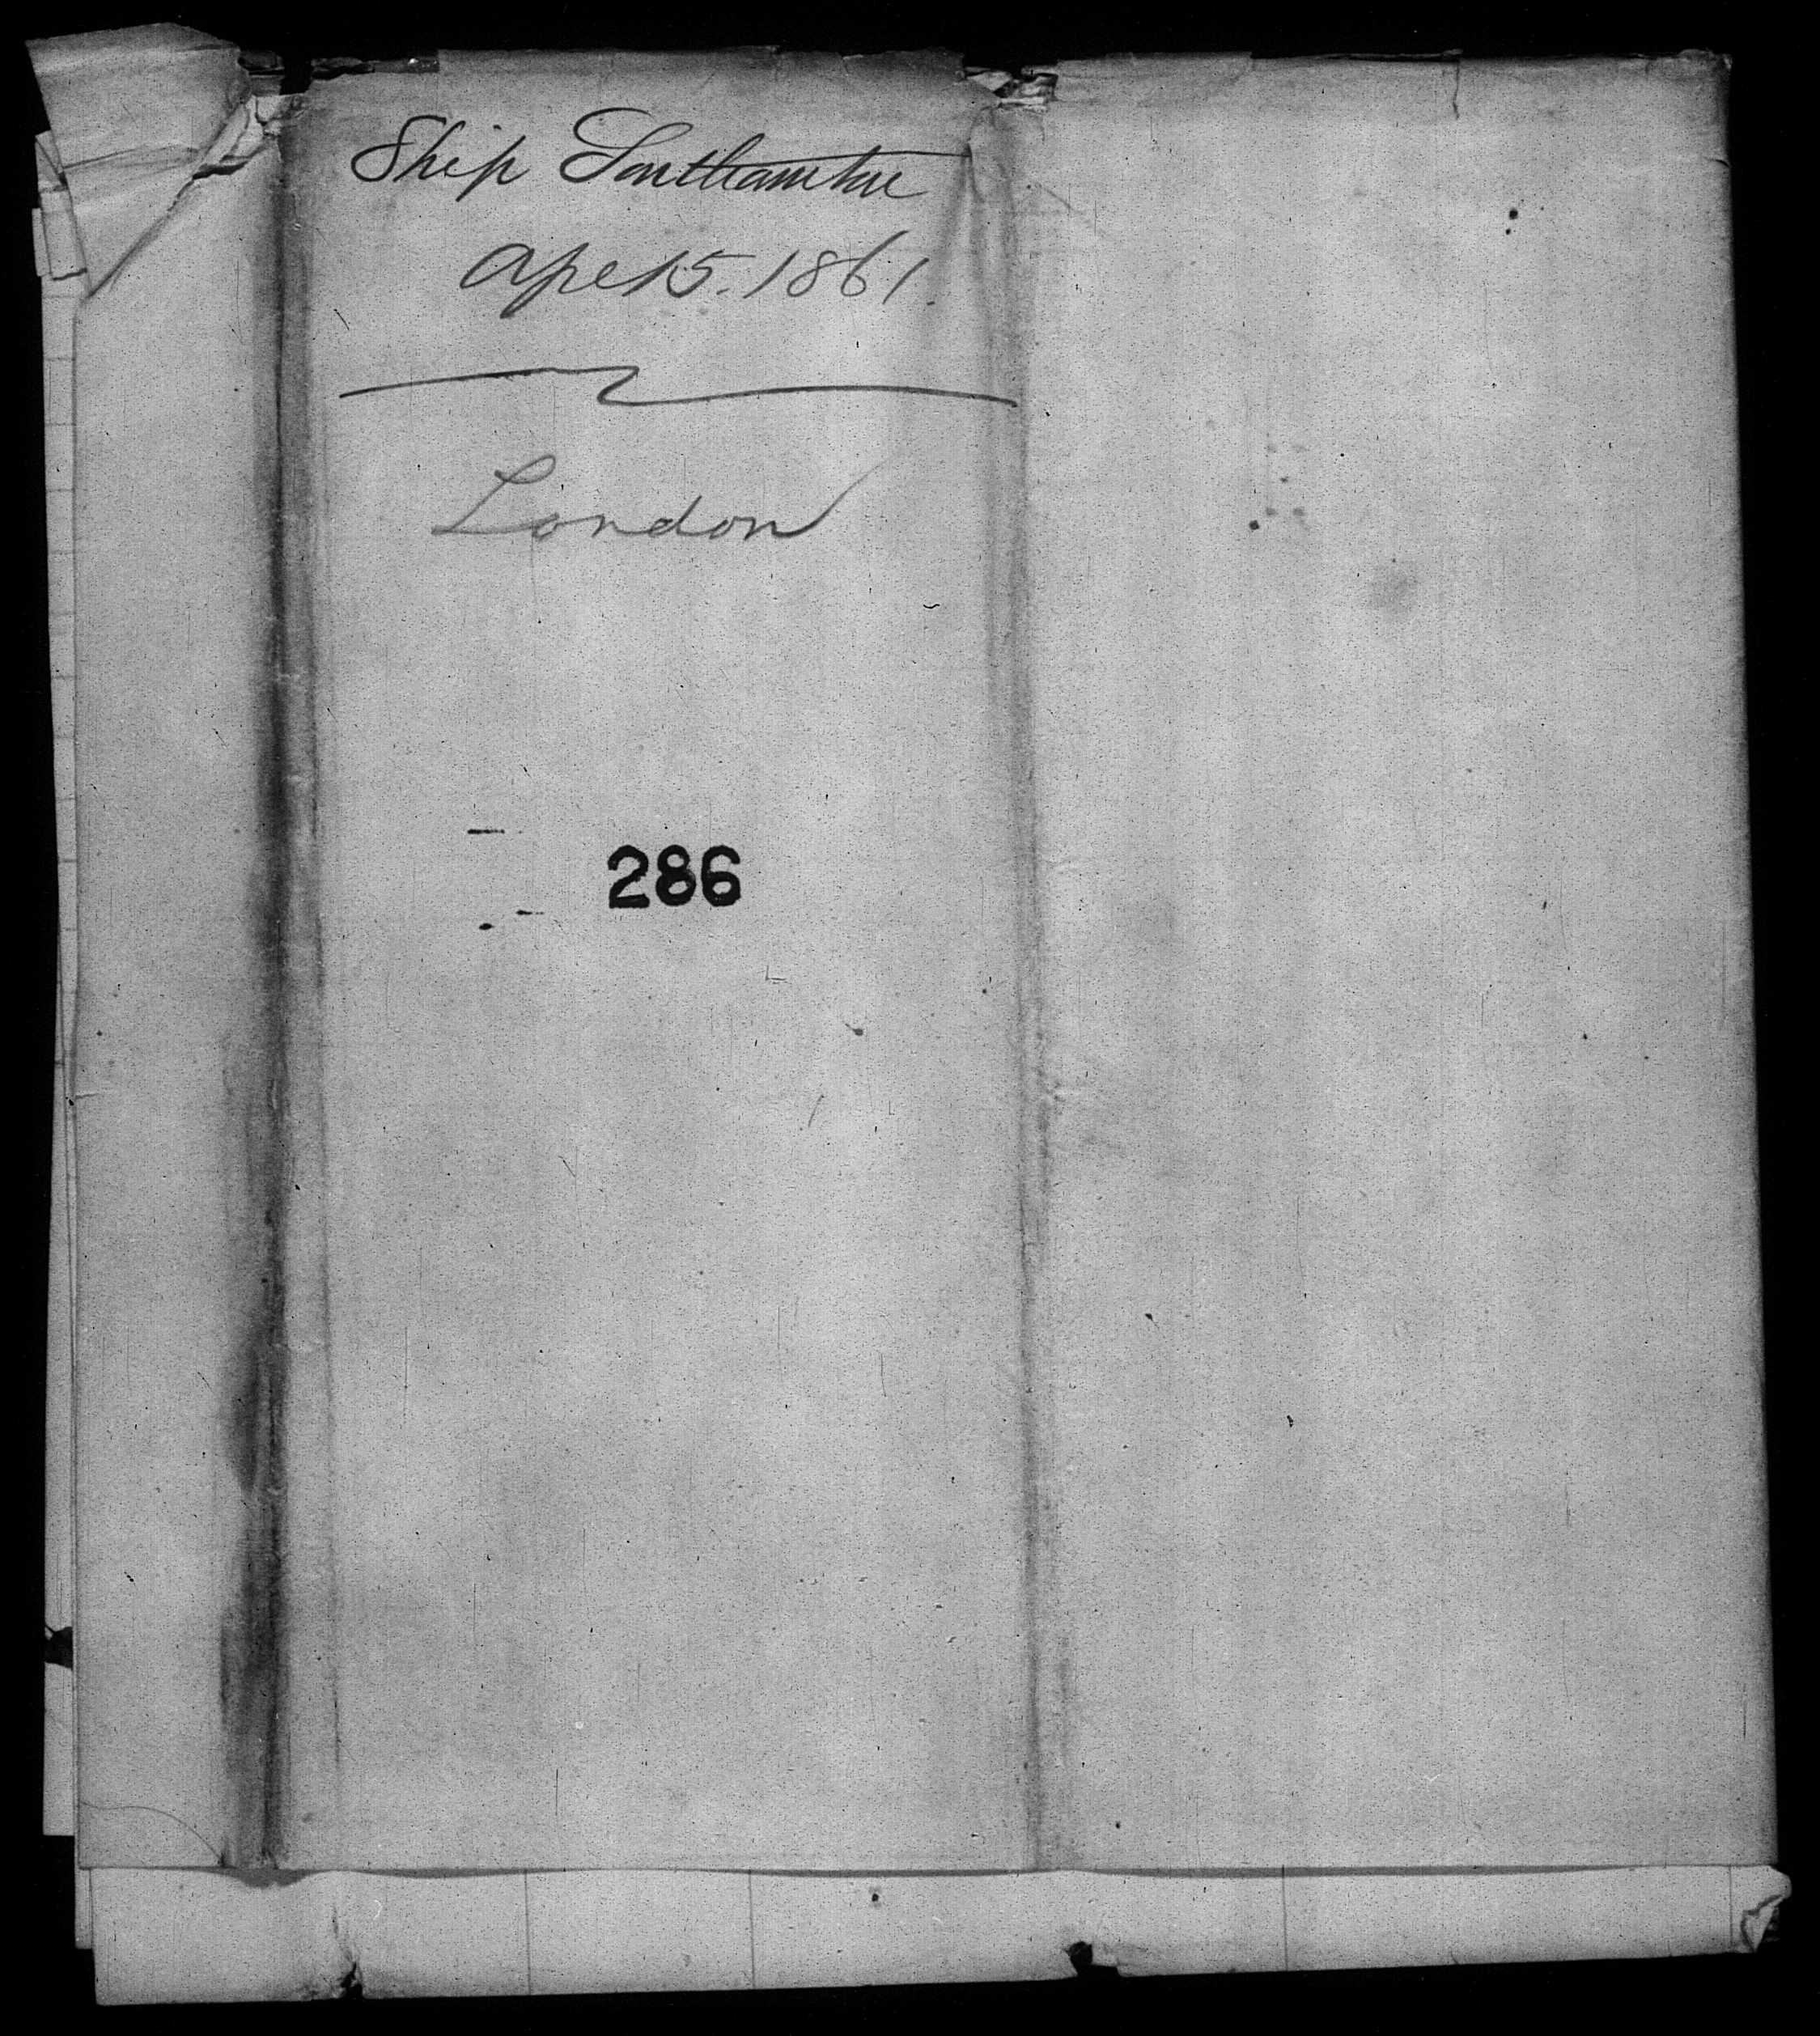 Ship Southampton
Apr 15. 1861.
London
286